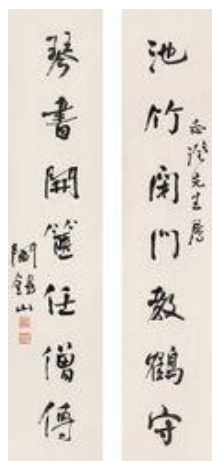 池竹閉門教鶴守
澄先生屬
琴書開篋任僧傳
閻錫山